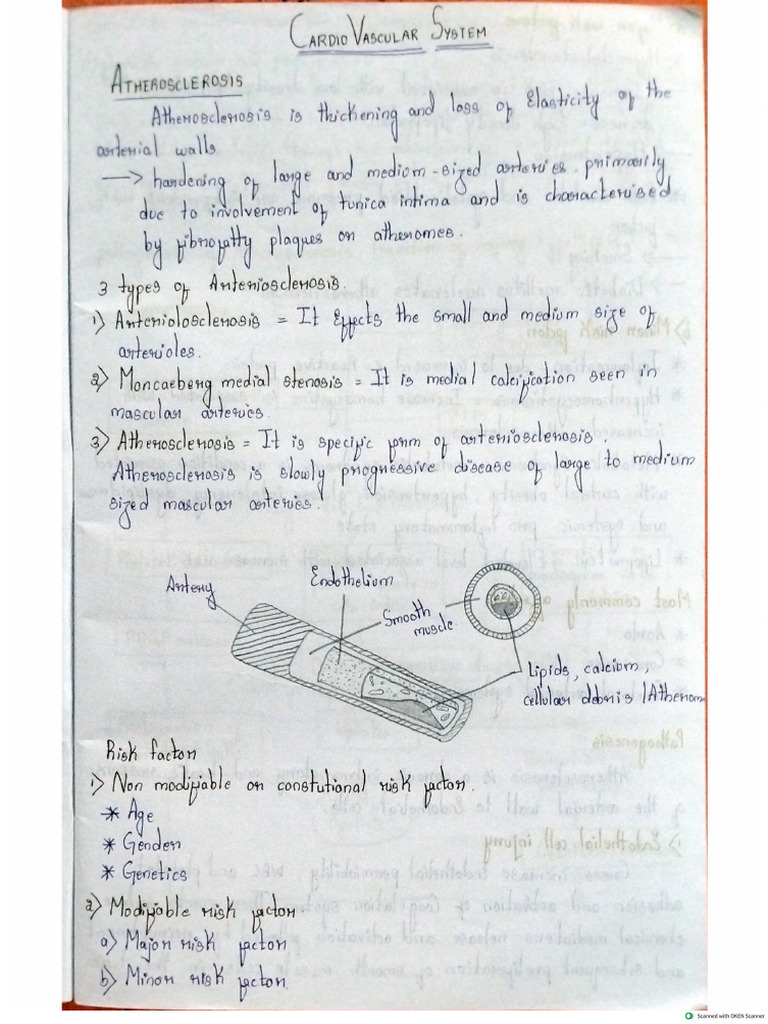 CARDIO VASCULAR SYSTEM
ATHEROSCLEROSIS
Atherosclerosis is thickening and loss of Elasticity of the
arterial walls.
→ hardening of large and medium-sized arteries, primarily
due to involvement of tunica intima and is characterised
by fibrofatty plaques or atheromes.
3 types of Arteriosclerosis.
1) Arteriolosclerosis = It Effects the small and medium size of
arterioles.
2) Moncaeberg medial stenosis = It is medial calcification seen in
mascular arteries.
3) Atherosclerosis = It is specific form of arteriosclerosis.
Atherosclerosis is slowly progressive disease of large to medium
sized mascular arteries.
Artery
Endothelium
Smooth
muscle
Lipids, calcium,
cellular debris / Atherom
Risk factor
1) Non modifiable or constutional risk factor.
* Age
* Gender
* Genetics
2) Modifiable risk factor.
a) Major risk factor
b) Minor risk factor.
Scanned with OKEN Scanner